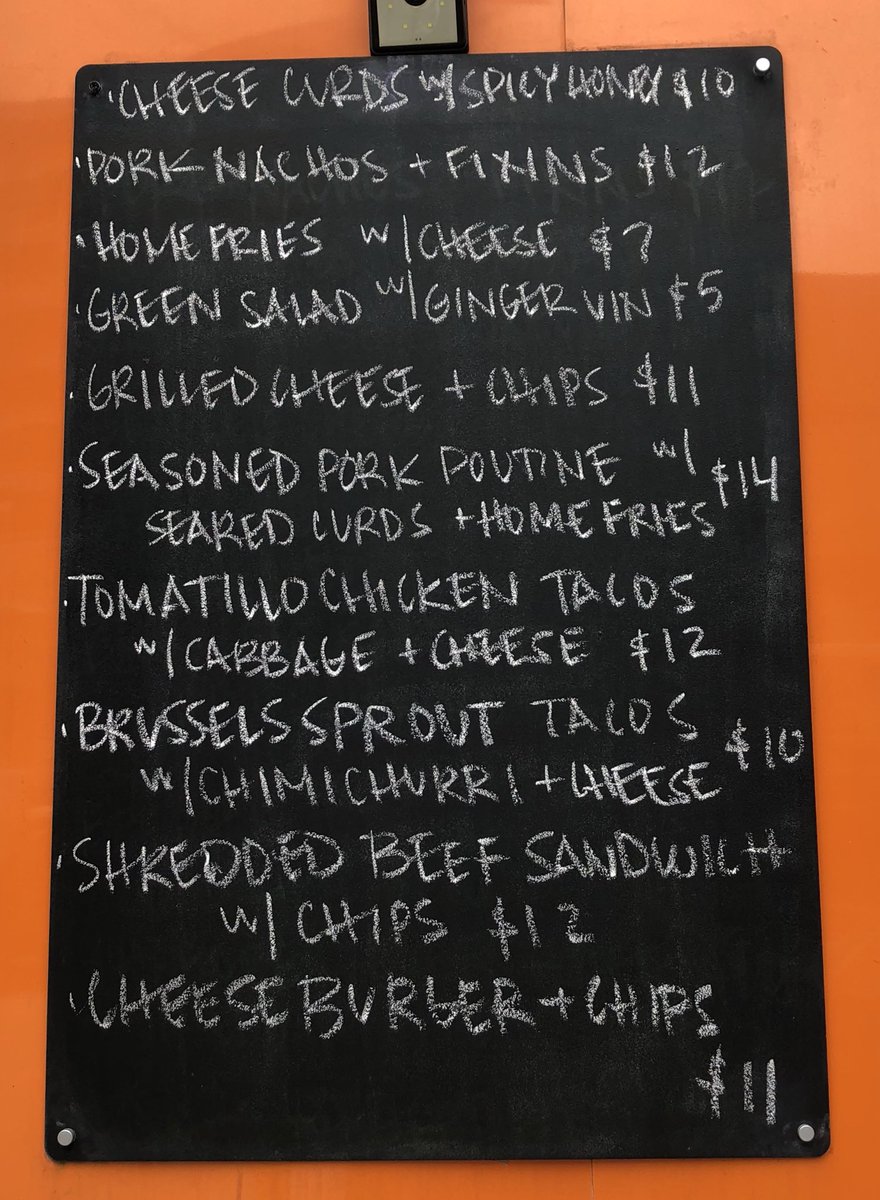 ·CHEESE CURDS W/SPICY HONEY $10
·PORK NACHOS + FIXINS $12
·HOME FRIES W/CHEESE $7
·GREEN SALAD W/GINGER VIN $5
·GRILLED CHEESE + CHIPS $11
·SEASONED PORK POUTINE W/ $14
SEARED CURDS + HOME FRIES
·TOMATILLO CHICKEN TACOS
W/CABBAGE + CHEESE $12
·BRUSSELS SPROUT TACOS $10
W/CHIMICHURRI + CHEESE
·SHREDDED BEEF SANDWICH
W/ CHIPS $12
·CHEESE BURGER + CHIPS
$11